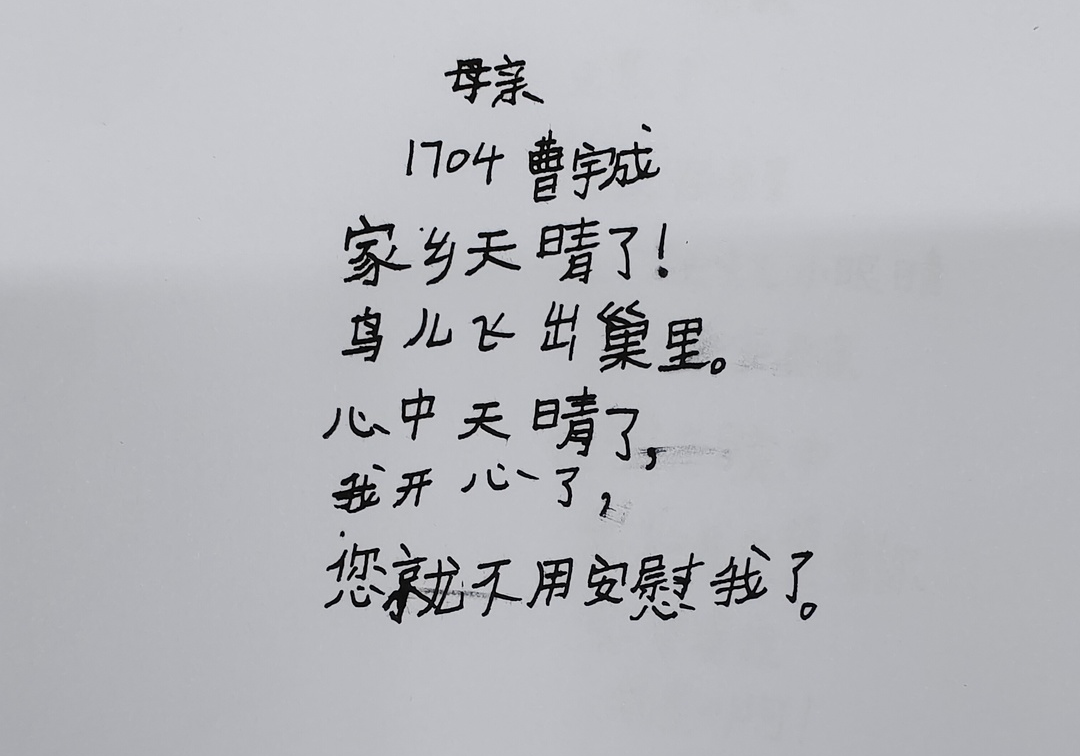 母亲
1704 曹宇成
家乡天晴了！
鸟儿飞出巢里。
心中天晴了，
我开心了，
您就不用安慰我了。